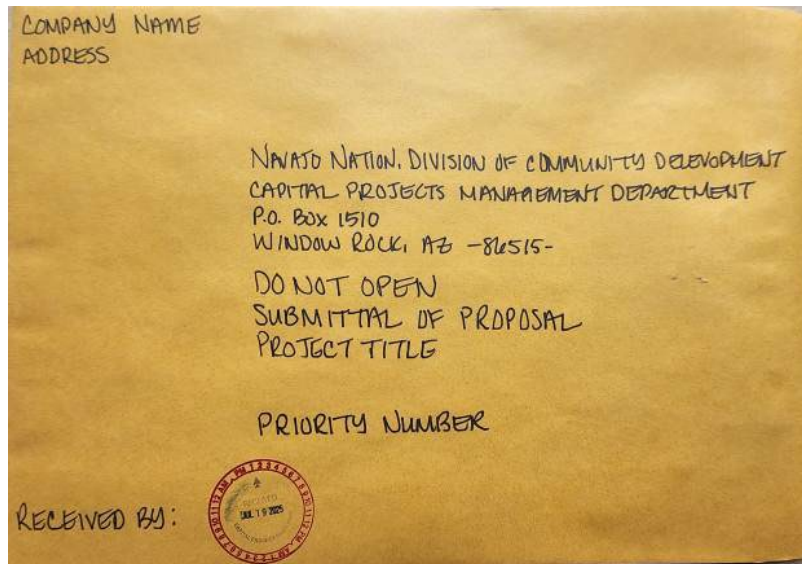 COMPANY NAME
ADDRESS
NAVAJO NATION, DIVISION OF COMMUNITY DELEVOPMENT
CAPITAL PROJECTS MANAGEMENT DEPARTMENT
P.O. BOX 1510
WINDOW ROCK, AZ -86515-
DO NOT OPEN
SUBMITTAL OF PROPOSAL
PROJECT TITLE
PRIORITY NUMBER
RECEIVED BY:
AM PM 1 2 3 4 5 6 7 8 9 10 11 12 PM AM 1 2 3 4 5 6 7 8 9 10 11 12
19 2025